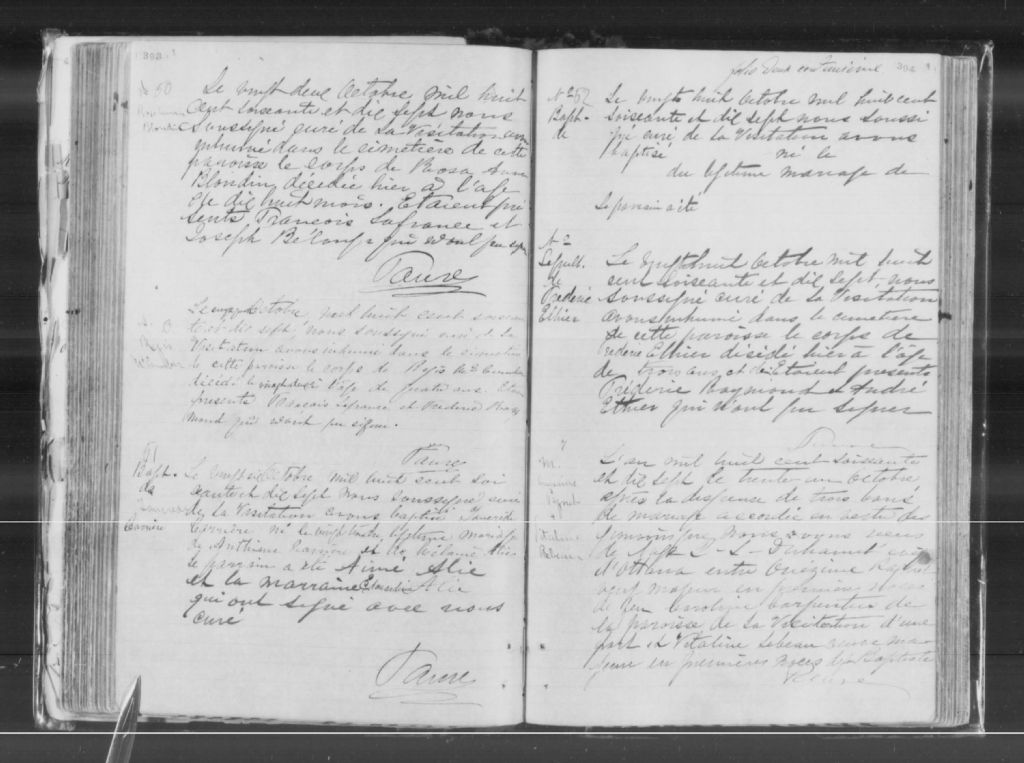 393
N 50
Le vingt deux Octobre mil huit
cent soixante et dix sept nous
soussigné curé de La Visitation avons
inhumé dans le cimetière de cette
paroisse le corps de Rosa Anna
Blondin décédée hier à l'age
de dix huit mois. Etaient pré
sents Francois Lafrance et
Joseph Bélanger qui n'ont pu signer
Faure
Octobre mil huit cent soixan
te et dix sept nous soussigné curé de la
Visitation avons inhumé dans le cimetière
de cette paroisse le corps de
décédé l'age de quatre ans. Etaient
présents Francois Lafrance et Frederic Ray
mond qui n'ont pu signer.
Faure
51
Bapt.
de
Carrière
Le vingt six Octobre mil huit cent soi
xante et dix sept nous soussigné curé
de La Visitation avons baptisé
Carrière né le vingt quatre légitime mariage
de Anthime Carrière et de Mélanie Alie
le parrain a été Aimé Alie
et la marraine Alie
qui ont signé avec nous
curé
Faure
folio deux cent
394
N 252
Bapt.
de
Le vingt huit Octobre mil huit cent
soixante et dix sept nous soussi
gné curé de La Visitation avons
baptisé né le
du légitime mariage de
Le parrain a été
N
Sépult.
de
Frederic
Ethier
Le vingt huit Octobre mil huit
cent soixante et dix sept, nous
soussigné curé de La Visitation
avons inhumé dans le cimetière
de cette paroisse le corps de
Frederic Ethier décédé hier à l'âge
de trois ans et demi Etaient présents
Fréderic Raymond et André
Ethier qui n'ont pu signer
Faure
M.
L'an mil huit cent soixante
et dix sept le trente un Octobre
après la dispense de trois bans
de mariage accordée en vertu des
nous avons reçu
de L. L. Duhamel
d'Ottawa entre Onezime
veuf majeur en premières noces
de feu Caroline Carpentier de
la paroisse de La Visitation d'une
part et Vitaline Lebeau veuve ma
jeure en premières noces de Baptiste